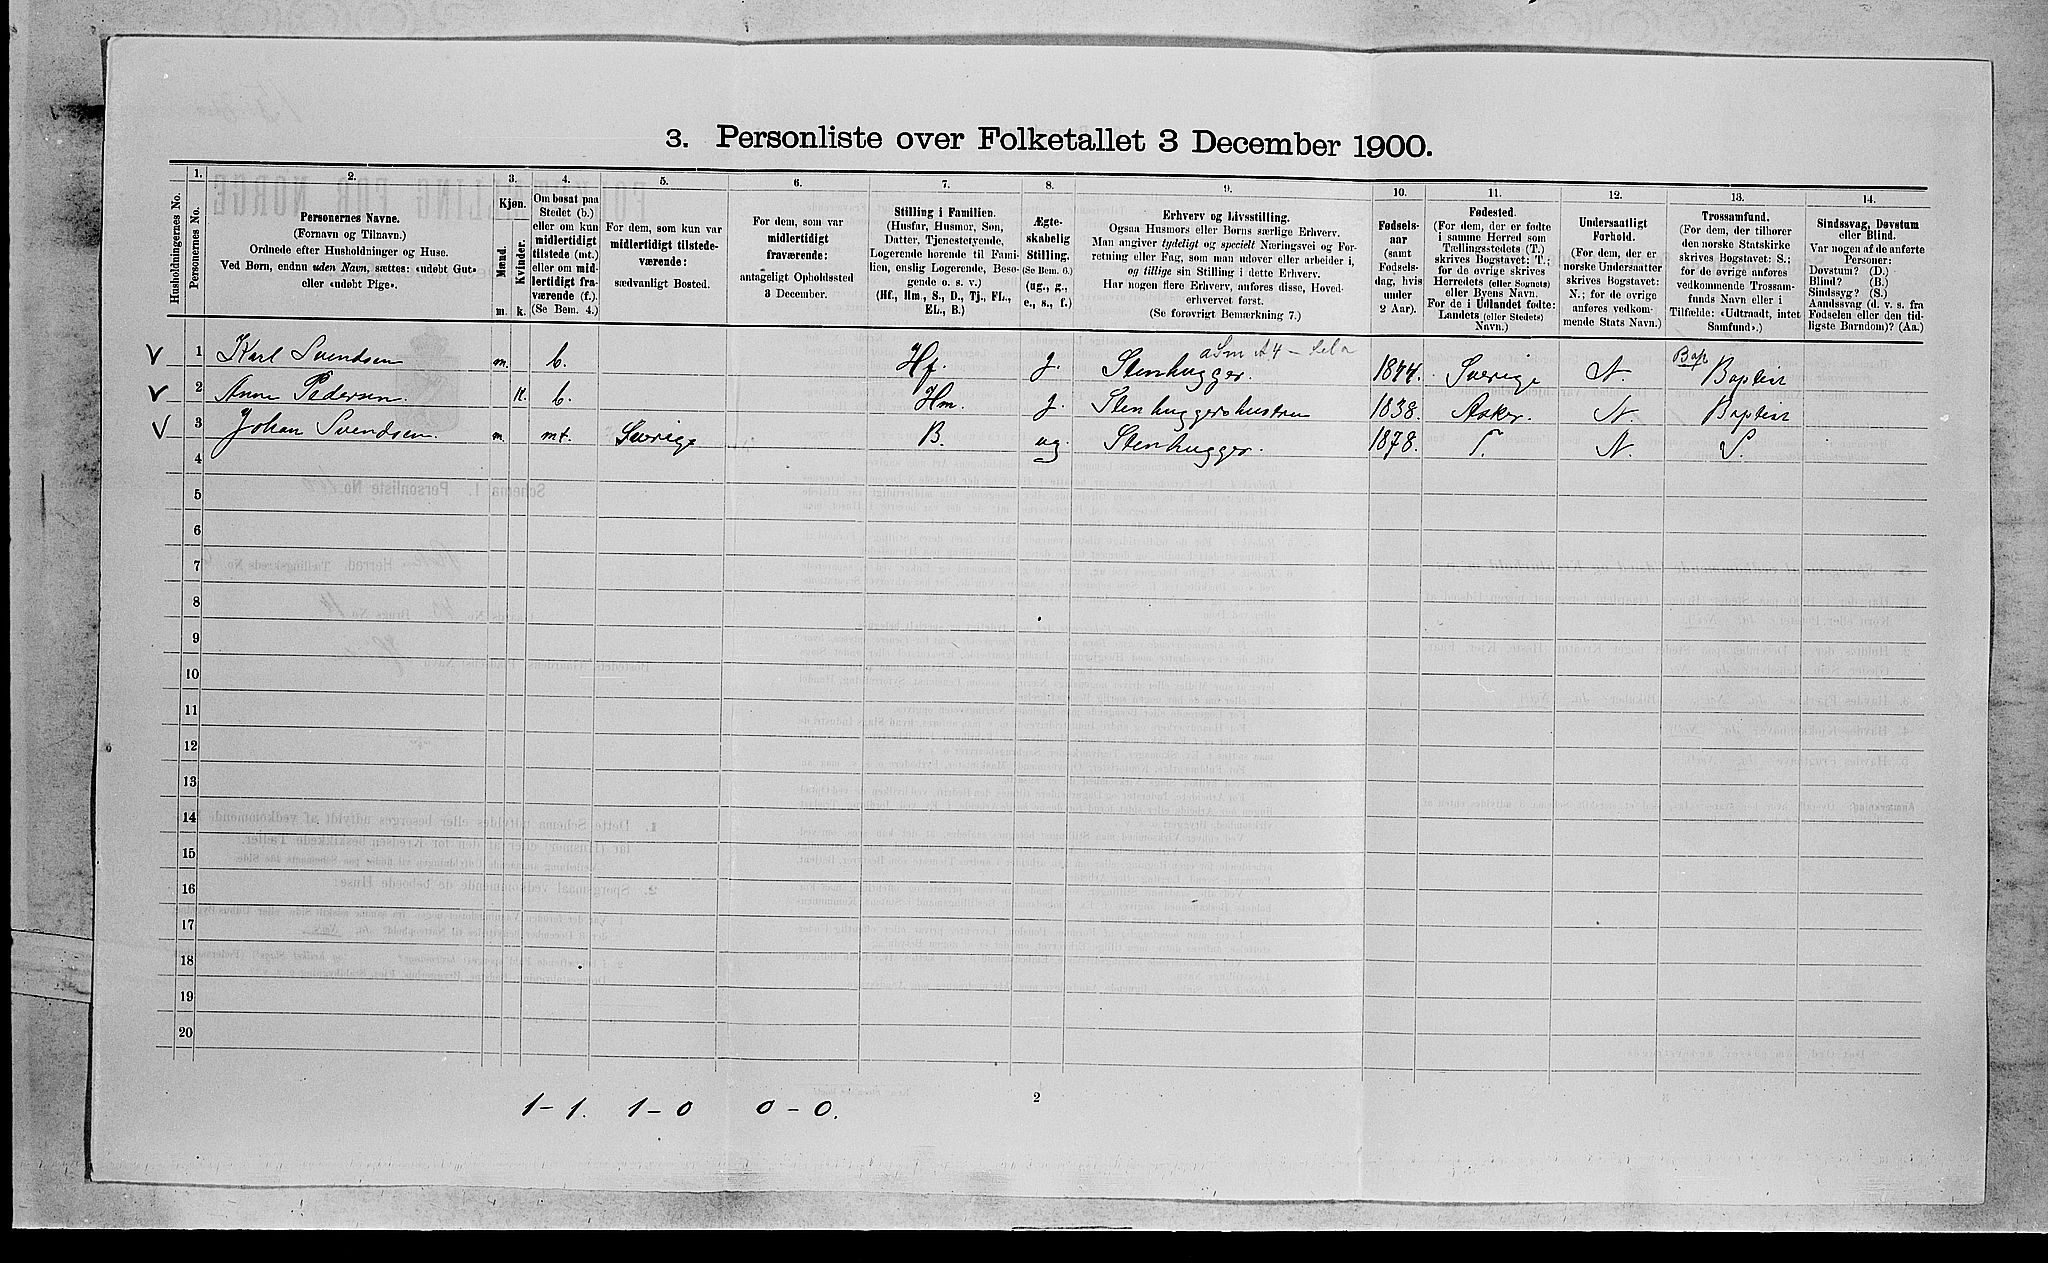 3. Personliste over Folketallet 3 December 1900.
Husholdningernes No.
1. Personernes No.
2. Personernes Navne.
(Fornavn og Tilnavn.)
Ordnede efter Husholdninger og Huse.
Ved Børn, endnu uden Navn, sættes: «udøbt Gut»
eller «udøbt Pige».
3. Kjøn.
Mænd. Kvinder.
m. k.
4. Om bosat paa
Stedet (b.)
eller om kun
midlertidigt
tilstede (mt.)
eller om mid-
lertidigt fra-
værende (f.).
(Se Bem. 4.)
5. For dem, som kun var
midlertidigt tilstede-
værende:
sædvanligt Bosted.
6. For dem, som var
midlertidigt
fraværende:
antageligt Opholdssted
3 December.
7. Stilling i Familien.
(Husfar, Husmor, Søn,
Datter, Tjenestetyende,
Logerende hørende til Fami-
lien, enslig Logerende, Besø-
gende o. s. v.)
(Hf., Hm., S., D., Tj., FL.,
EL., B.)
8. Ægte-
skabelig
Stilling.
(Se Bem. 6.)
(ug., g.,
e., s., f.)
9. Erhverv og Livsstilling.
Ogsaa Husmors eller Børns særlige Erhverv.
Man angiver tydeligt og specielt Næringsvei og For-
retning eller Fag, som man udøver eller arbeider i,
og tillige sin Stilling i dette Erhverv.
Har nogen flere Erhverv, anføres disse, Hoved-
erhvervet først.
(Se forøvrigt Bemærkning 7.)
10. Fødsels-
aar
(samt
Fødsels-
dag, hvis
under
2 Aar).
11. Fødested.
(For dem, der er fødte
i samme Herred som
Tællingstedets (T.)
skrives Bogstavet: T.;
for de øvrige skrives
Herredets (eller Sognets)
eller Byens Navn.
For de i Udlandet fødte:
Landets (eller Stedets)
Navn.)
12. Undersaatligt
Forhold.
(For dem, der er
norske Undersaatter
skrives Bogstavet:
N.; for de øvrige
anføres vedkom-
mende Stats Navn.)
13. Trossamfund.
(For dem, der tilhører
den norske Statskirke
skrives Bogstavet: S.;
for de øvrige anføres
vedkommende Trossam-
funds Navn eller i
Tilfælde: «Udtraadt, intet
Samfund».)
14. Sindssvag, Døvstum
eller Blind.
Var nogen af de anførte
Personer:
Døvstum? (D.)
Blind? (B.)
Sindssyg? (S.)
Aandssvag (d. v. s. fra
Fødselen eller den tid-
ligste Barndom)? (Aa.)
V 1 Karl Svendsen m. b. Hf. g. Stenhugger. 1844. Sverige N. Bap Baptist
V 2 Anne Pedersen. k. b. Hm. g. Stenhuggershustru 1838. Asker. N Baptist
V 3 Johan Svendsen. m. mt. Sverige B. ug. Stenhugger. 1878. T. N. S.
4
5
6
7
8
9
10
11
12
13
14
15
16
17
18
19
20
1-1. 1-0 0-0.
2